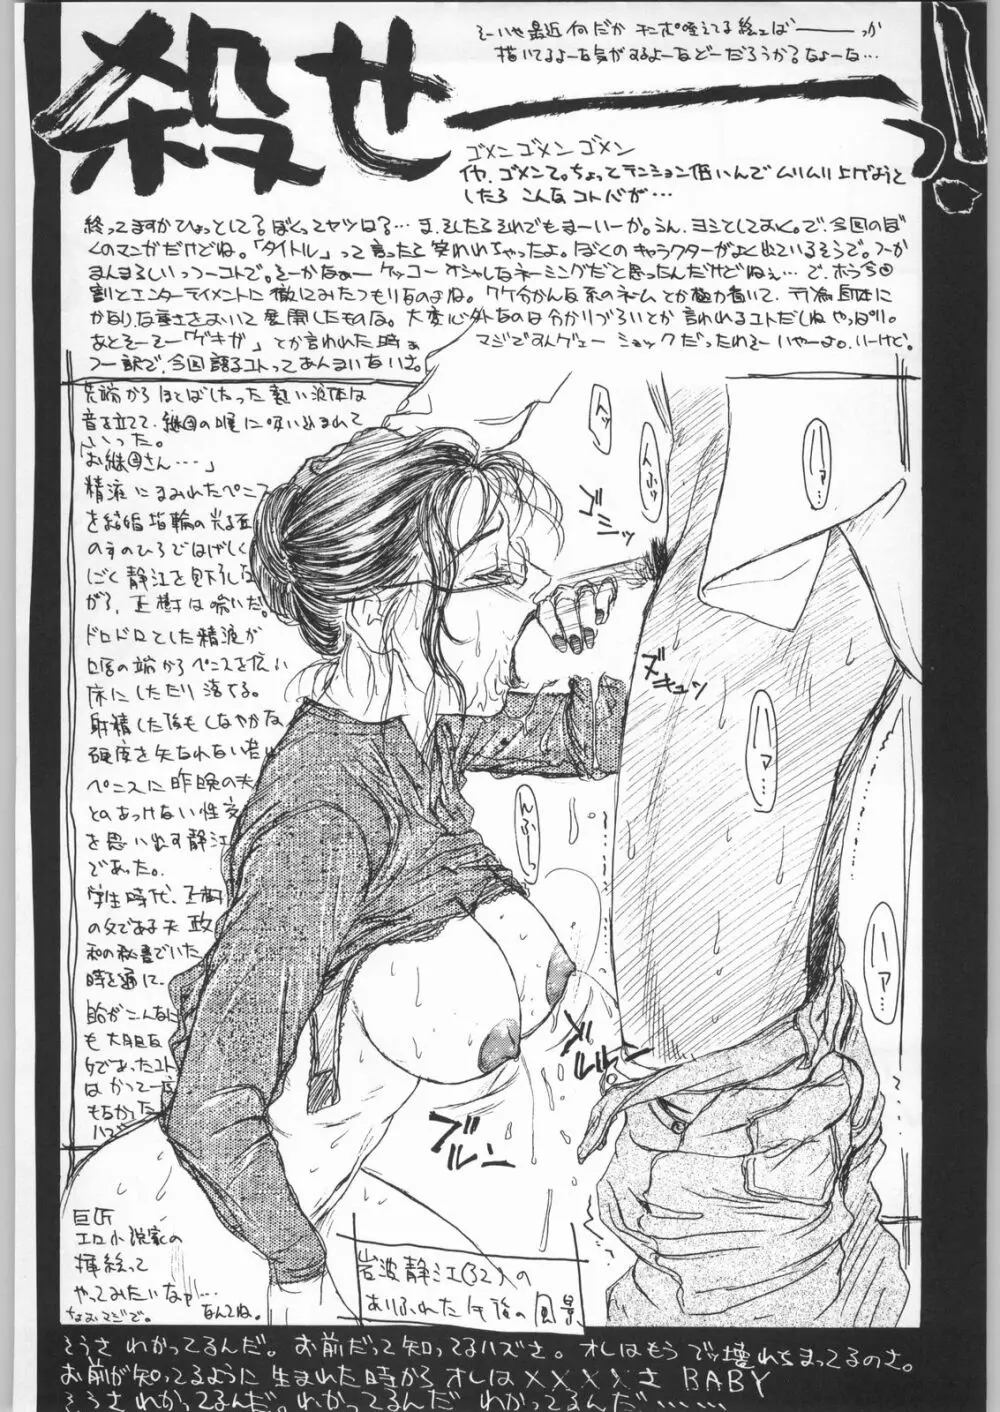 そーいや最近何だかチンポ咥えてる絵ばーーーっか
描いてるよーな気がするよーなどーだろうか?なよーな…
殺せーーっ!!
ゴメンゴメンゴメン
イヤ、ゴメンて。ちょっとテンション低いんでムリムリ上げようと
したらこんなコトバが…
終ってますかひょっとして?ぼくってヤツは?…ま、そしたらそれでもまーいーか。うん、ヨシとしておく。で、今回のぼ
くのマンガだけどね。「タイトル」って言ったら笑われちゃったよ。ぼくのキャラクターがよく出ているそうで。つーか
まんまらしいっつーコトで。そーかなぁー ケッコーオシャレなネーミングだと思ったんだけどねぇ…で、ホラ今回
割とエンターテイメントに徹してみたつもりなのよね。ワケ分かんな系のネームとか極力省いて、行為自体に
かなりな重きをおいて展開したものな。大変心外なのは分かりづらいとか言われるコトだしね やっぱり。
あとそーそー「ゲキガ」とか言われた時ぁ マジですんゲェー ショックだったわそーいやーよ。いーけど。
つー訳で、今回語るコトってあんまいないさ。
先端からほとばしった熱い液体は
音を立てて、継母の喉に吸い込まれて
いった。
「お継母さん…」
精液にまみれたペニス
を結婚指輪の光る
のてのひらではげしく
しごく静江を見下ろしな
がら、正樹は喘いだ。
ドロドロとした精液が
口唇の端からペニスを伝い
床にしたたり落ちる。
射精した後もしなやかな
硬度を失なわれない若い
ペニスに昨晩の夫
とのあっけない性交
を思い出す静江
であった。
学生時代、正樹
の父である夫政
和の秘書でいた
時を通じて、
こんなに
も大胆な
であったコト
はかつて一度
もなかった
ハズ
ンッ
んふッ
ゴニッ
ハァ…
ズキュン
ハァ…
んふーっ
ハァ…
ブルルン
ブルン
巨匠
エロ小説家の
挿絵って
やってみたいなァ…
ちょおマジで。 なんてね。
岩波静江(32)の
ありふれた午後の風景
そうさ わかってるんだ。お前だって知ってるハズさ。オレはもう でッ壊れちまってるのさ。
お前が知ってるように 生まれた時から オレは××××さ BABY
そうさ わかってるんだ。わかってるんだ わかってるんだ……